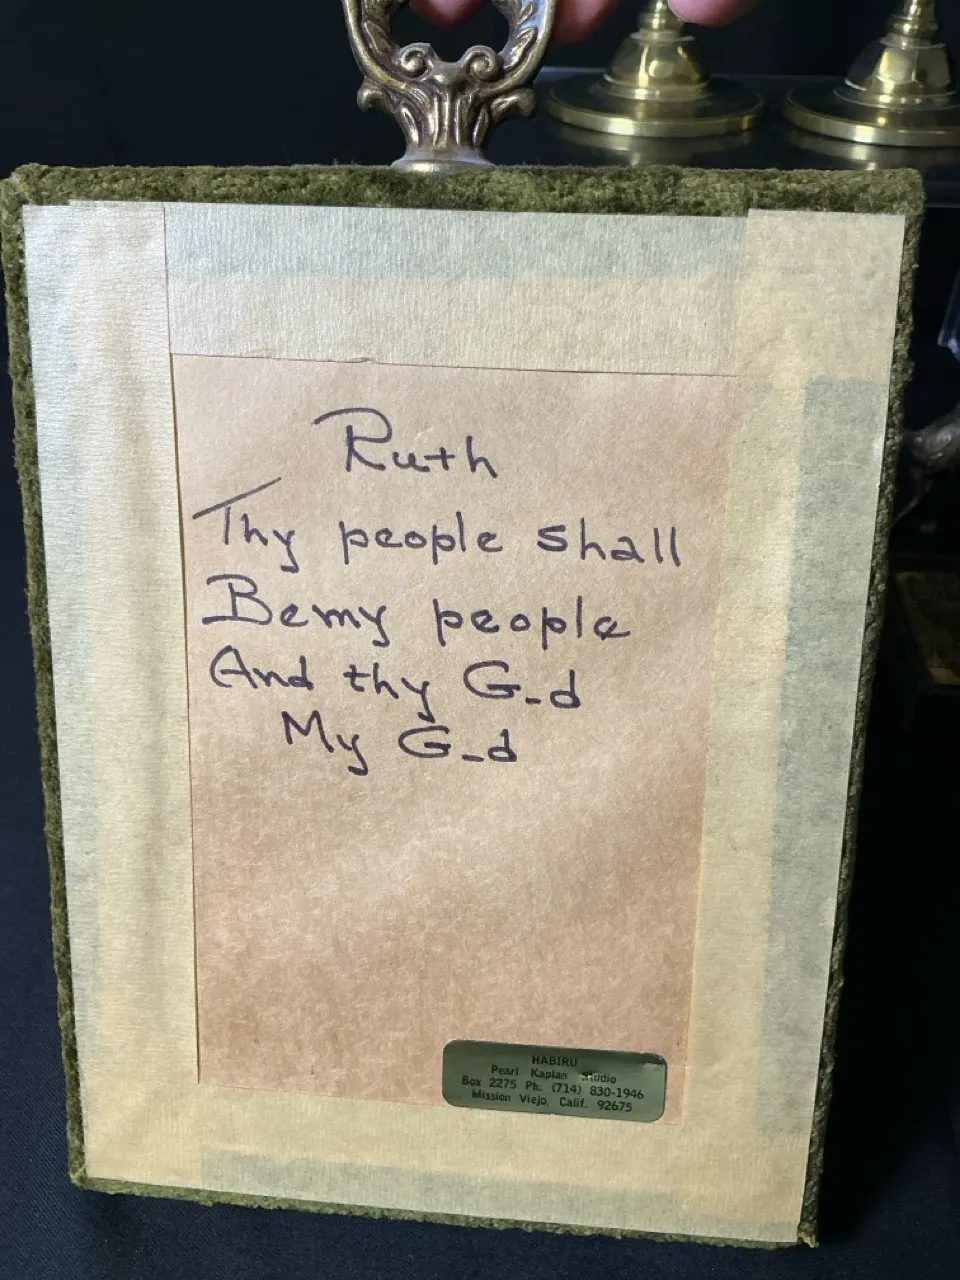 Ruth
Thy people shall
Be my people
And thy G-d
My G-d
HABIRU
Pearl Kaplan Studio
Box 2275 Ph: (714) 830-1946
Mission Viejo, Calif. 92675